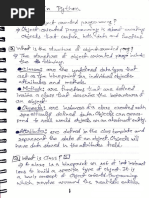 in Python
object oriented programming?
• Object-oriented Programming is about creating
objects that contain both data and functions
What is the structure of object-oriented prog?
• The structure of object-oriented
programming
following.
are user defined data types
that act as the blueprint for individual objects
attributes and methods.
Methods are functions that are defined
inside a class that describe the
of an object.
are instances of a class created with
specifically defined data. Objects can correspond
to real-world objects or an
Attributes are defined in the class template and
represent the state of an object. Objects will
have data stored in the attributes field.
What is Class?
• A class is a blueprint or set of instructions
to build a specific type of object. It is
a basic concept of Object-Oriented Programming
which revolve around the real-life entities